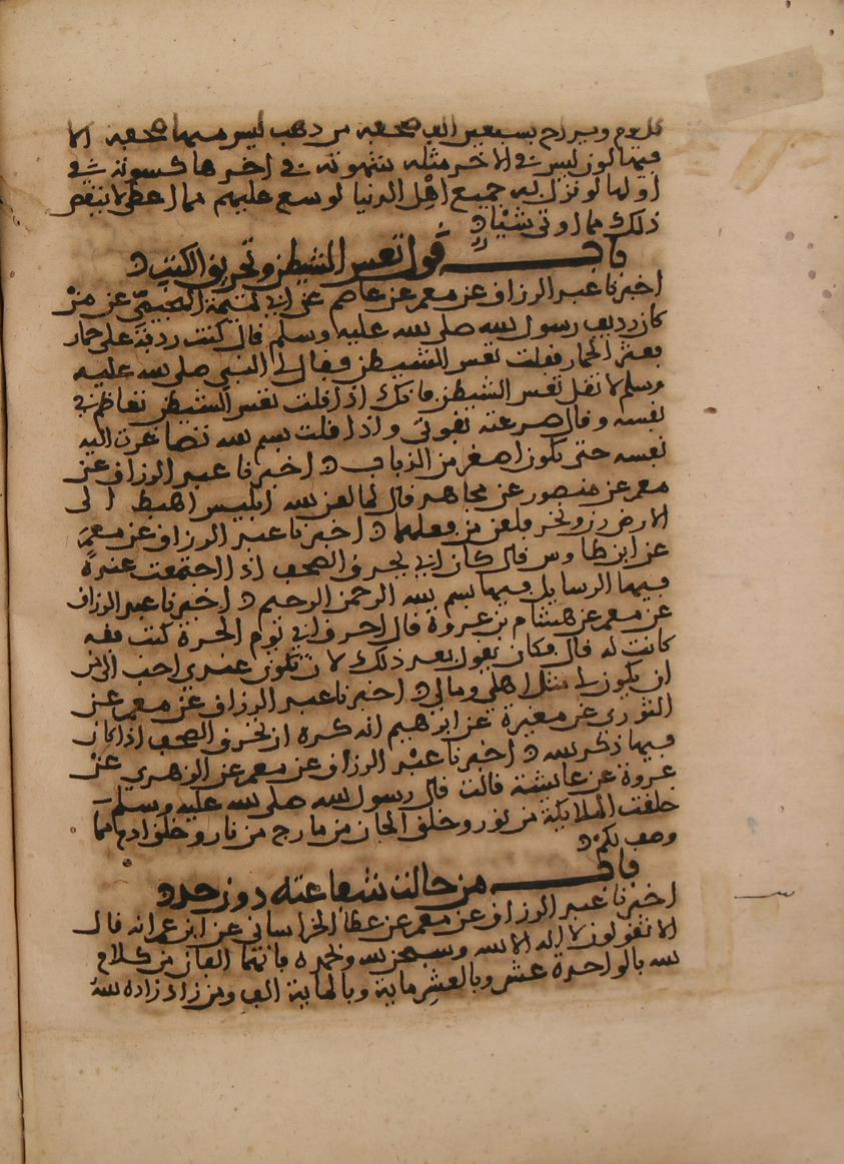 كل يوم ويراح بسبعين الف صحفة من ذهب ليس منها صحفة الا
فيها لون ليس في الاخر مثله شهوته في اخرها كشهوته في
اولها لو نزل به جميع اهل الدنيا لوسع عليهم مما اعطي لا ينقص
ذلك مما اوتي شيئا
باب قول تعس الشيطن وتحريق الكتب
اخبرنا عبد الرزاق عن معمر عن عاصم عن ابي تميمة الهجيمي عن من
كان رديف رسول الله صلى الله عليه وسلم قال كنت ردفه على حمار
فعثر الحمار فقلت تعس الشيطن فقال لي النبي صلى الله عليه
وسلم لا تقل تعس الشيطن فانك اذا قلت تعس الشيطن تعاظم في
نفسه وقال صرعته بقوتي واذا قلت بسم الله تصاغرت اليه
نفسه حتى يكون اصغر من الذباب اخبرنا عبد الرزاق عن
معمر عن منصور عن مجاهد قال لما لعن الله ابليس اهبط الى
الارض رن ونخر فلعن من فعلهما اخبرنا عبد الرزاق عن معمر
عن ابن طاوس قال كان ابي يحرق الصحف اذا اجتمعت عنده
فيها الرسايل فيها بسم الله الرحمن الرحيم اخبرنا عبد الرزاق
عن معمر عن هشام بن عروة قال احرق ابي يوم الحرة كتب فقه
كانت له قال فكان يقول بعد ذلك لان تكون عندي احب الي من
ان يكون لي مثل اهلي ومالي اخبرنا عبد الرزاق عن معمر عن
الثوري عن مغيرة عن ابرهيم انه كره ان تحرق الصحف اذا كان
فيها ذكر الله اخبرنا عبد الرزاق عن معمر عن الزهري عن
عروة عن عايشة قالت قال رسول الله صلى الله عليه وسلم
خلقت الملايكة من نور وخلق الجان من مارج من نار وخلق ادم مما
وصف لكم
باب من حالت شفاعته دون حد
اخبرنا عبد الرزاق عن معمر عن عطا الخراساني عن ابن عمر انه قال
الا تقولون لا اله الا الله وسبحن الله وبحمده فانهما القان من كلام
الله بالواحدة عشر وبالعشر ماية وبالماية الف ومن زاد زاده الله